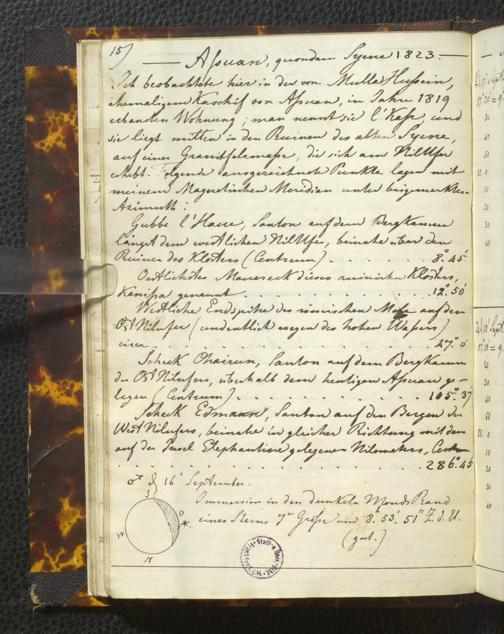 15)
Assuan, quondam Syene 1823.
Ich beobachtete hier in der von Mulla Hussein,
ehemaligem Kaschif von Assuan, im Jahre 1819
erbauten Wohnung; man nennt sie l'Kasr, und
sie liegt mitten in den Ruinen des alten Syene,
auf einer Granitfelsmasse, die sich am NilUfer
erhebt. Folgende ausgezeichnete Punkte lagen mit
meinem Magnetischen Meridian unter beigemerktem
Azimuth:
Gubbe l'Haue, Santon auf dem Bergkamme
längst dem westlichen NilUfer, beinahe über den
Ruinen des Klosters (Centrum) . . . . . . 8° 45'
Oestlichstes Mauereck dieses ruinirten Klosters,
Kenissa genannt . . . . . . 12° 50'
Westliche Endspitze des römischen auf dem
Ost Nilufer (undeutlich wegen des hohen Wassers)
circa . . . . . . 27° 0
Scheck Santon auf dem Bergkamm
des Ost Nilufers, überhalb dem heutigen Assuan ge-
legen (Centrum) . . . . . . 105° 37
Scheck Santon auf den Bergen des
West Nilufers, beinahe in gleicher Richtung mit dem
auf der Insel Elephantine gelegenen Nilometer, Centrum
. . . . . . 286° 45
♂ d 16' September.
S
Immersion in den dunkeln Monds Rand
O
W
eines Sterns 7r Größe um 8° 53' 51" Z. d. U.
N
(gut.)